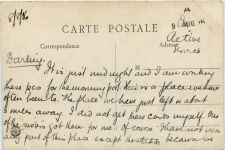 8/8/16
CARTE POSTALE
Correspondance
Adresse
Active
Darling.
It is just midnight and I am
these for the morning post this is a place
often heard of. The place we have just left is about
miles away. I did not get these cards myself. One
of the got them for me of course I have not seen
any part of this place except the station because we